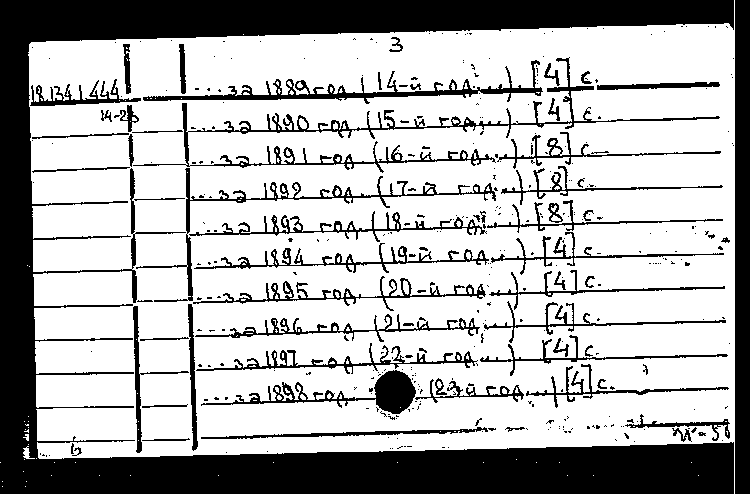 3
18.134.1.444 ...за 1889 год (14-й год...). [4] с.
14-23 ...за 1890 год. (15-й год...). [4] с.
...за 1891 год (16-й год...). [8] с.
...за 1892 год. (17-й год...). [8] с.
...за 1893 год. (18-й год...). [8] с.
...за 1894 год. (19-й год...). [4] с.
...за 1895 год. (20-й год...). [4] с.
...за 1896 год. (21-й год...). [4] с.
...за 1897 год (22-й год...). [4] с.
...за 1898 год (23-й год...). [4] с.
б